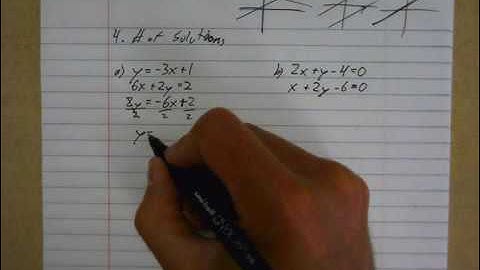 4. # of Solutions
a) y = -3x + 1
6x + 2y = 2
2y = -6x + 2
2 2 2
y =
b) 2x + y - 4 = 0
x + 2y - 6 = 0